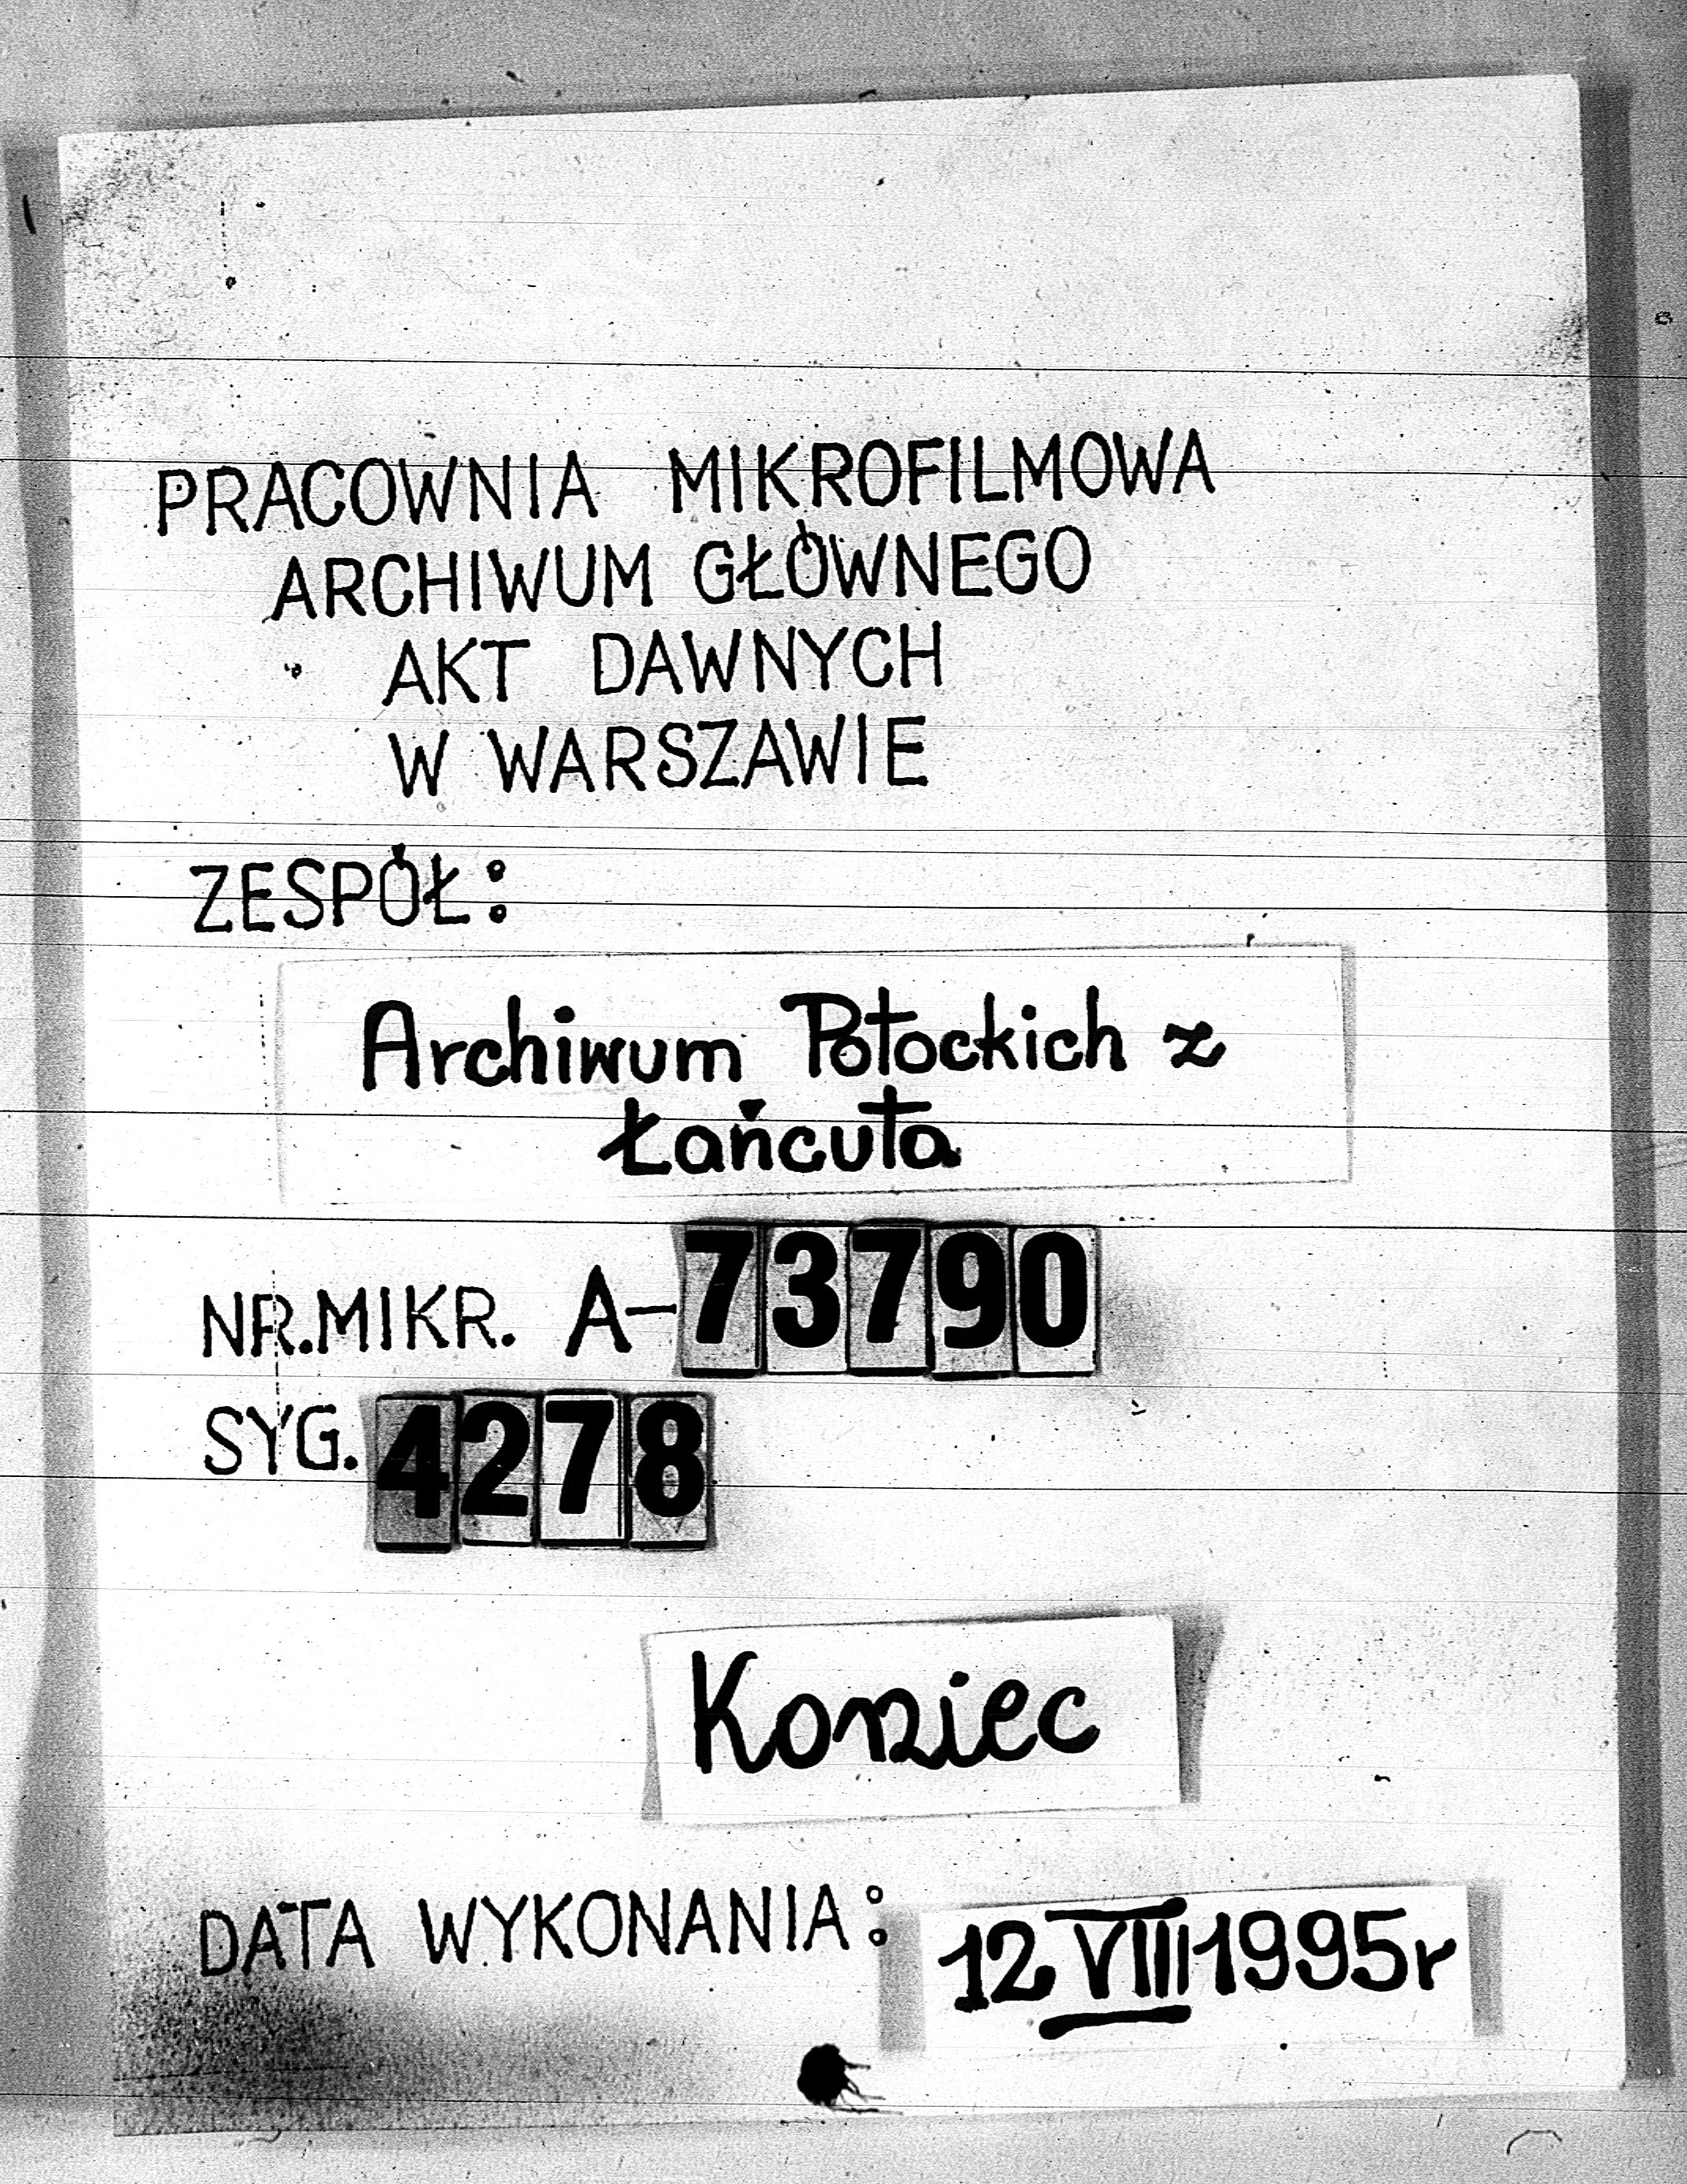 PRACOWNIA MIKROFILMOWA
ARCHIWUM GŁÓWNEGO
AKT DAWNYCH
W WARSZAWIE
ZESPÓŁ:
Archiwum Potockich z
Łańcuta
NR.MIKR. A-73790
SYG. 4278
Koniec
DATA WYKONANIA: 12 VIII 1995r